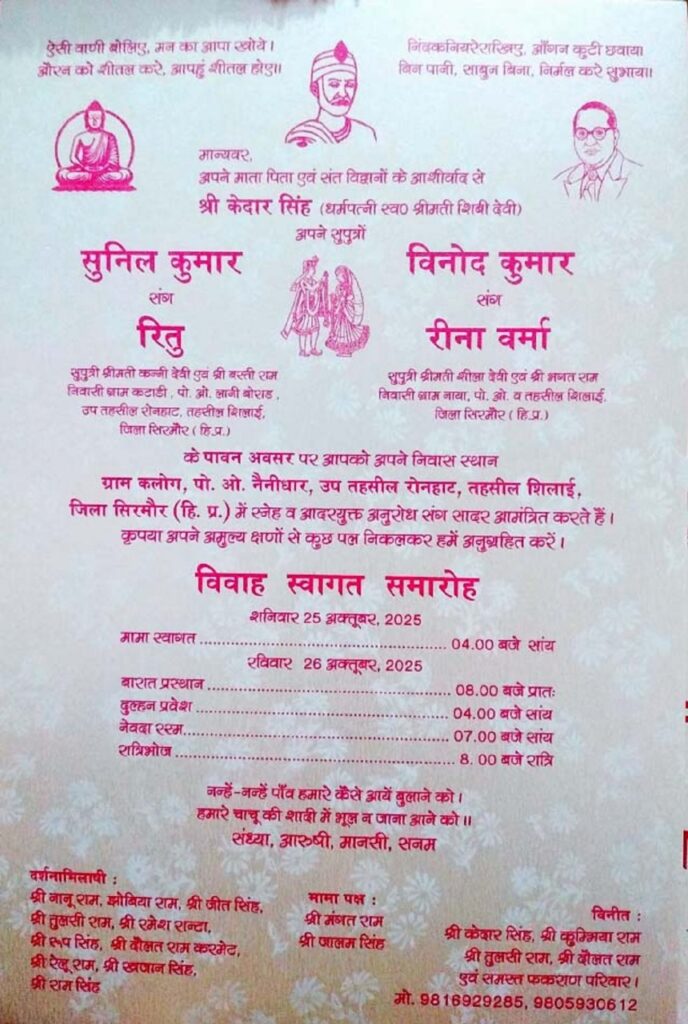 ऐसी वाणी बोलिए, मन का आपा खोये।
औरन को शीतल करे, आपहुं शीतल होए॥
निंदकनियरेराखिए, आँगन कुटी छवाय।
बिन पानी, साबुन बिना, निर्मल करे सुभाय॥
मान्यवर,
अपने माता पिता एवं संत विद्वानों के आशीर्वाद से
श्री केदार सिंह (धर्मपत्नी स्व0 श्रीमती शिबी देवी)
अपने सुपुत्रों
सुनिल कुमार
संग
रितु
सुपुत्री श्रीमती कन्नी देवी एवं श्री बस्ती राम
निवासी ग्राम कटाडी, पो. ओ. लानी बोराड,
उप तहसील रोनहाट, तहसील शिलाई,
जिला सिरमौर (हि.प्र.)
विनोद कुमार
संग
रीना वर्मा
सुपुत्री श्रीमती शीला देवी एवं श्री भगत राम
निवासी ग्राम नाया, पो. ओ. व तहसील शिलाई,
जिला सिरमौर (हि.प्र.)
के पावन अवसर पर आपको अपने निवास स्थान
ग्राम कलोग, पो. ओ. नैनीधार, उप तहसील रोनहाट, तहसील शिलाई,
जिला सिरमौर (हि. प्र.) में स्नेह व आदरयुक्त अनुरोध संग सादर आमंत्रित करते हैं।
कृपया अपने अमुल्य क्षणों से कुछ पल निकलकर हमें अनुग्रहित करें।
विवाह स्वागत समारोह
शनिवार 25 अक्तूबर, 2025
मामा स्वागत ........................ 04.00 बजे सांय
रविवार 26 अक्तूबर, 2025
बारात प्रस्थान ........................ 08.00 बजे प्रातः
दुल्हन प्रवेश ........................ 04.00 बजे सांय
नेवदा रस्म ........................ 07.00 बजे सांय
रात्रिभोज ........................ 8. 00 बजे रात्रि
नन्हें-नन्हें पाँव हमारे कैसे आयें बुलाने को।
हमारे चाचू की शादी में भूल न जाना आने को॥
संध्या, आरुषी, मानसी, सनम
दर्शनाभिलाषी :
श्री नानू राम, झोबिया राम, श्री जीत सिंह,
श्री तुलसी राम, श्री रमेश रान्टा,
श्री रूप सिंह, श्री दौलत राम करमेट,
श्री रेलू राम, श्री खजान सिंह,
श्री राम सिंह
मामा पक्ष :
श्री मंगत राम
श्री जालम सिंह
विनीत :
श्री केदार सिंह, श्री कुम्भिया राम
श्री तुलसी राम, श्री दौलत राम
एवं समस्त फकराण परिवार।
मो. 9816929285, 9805930612